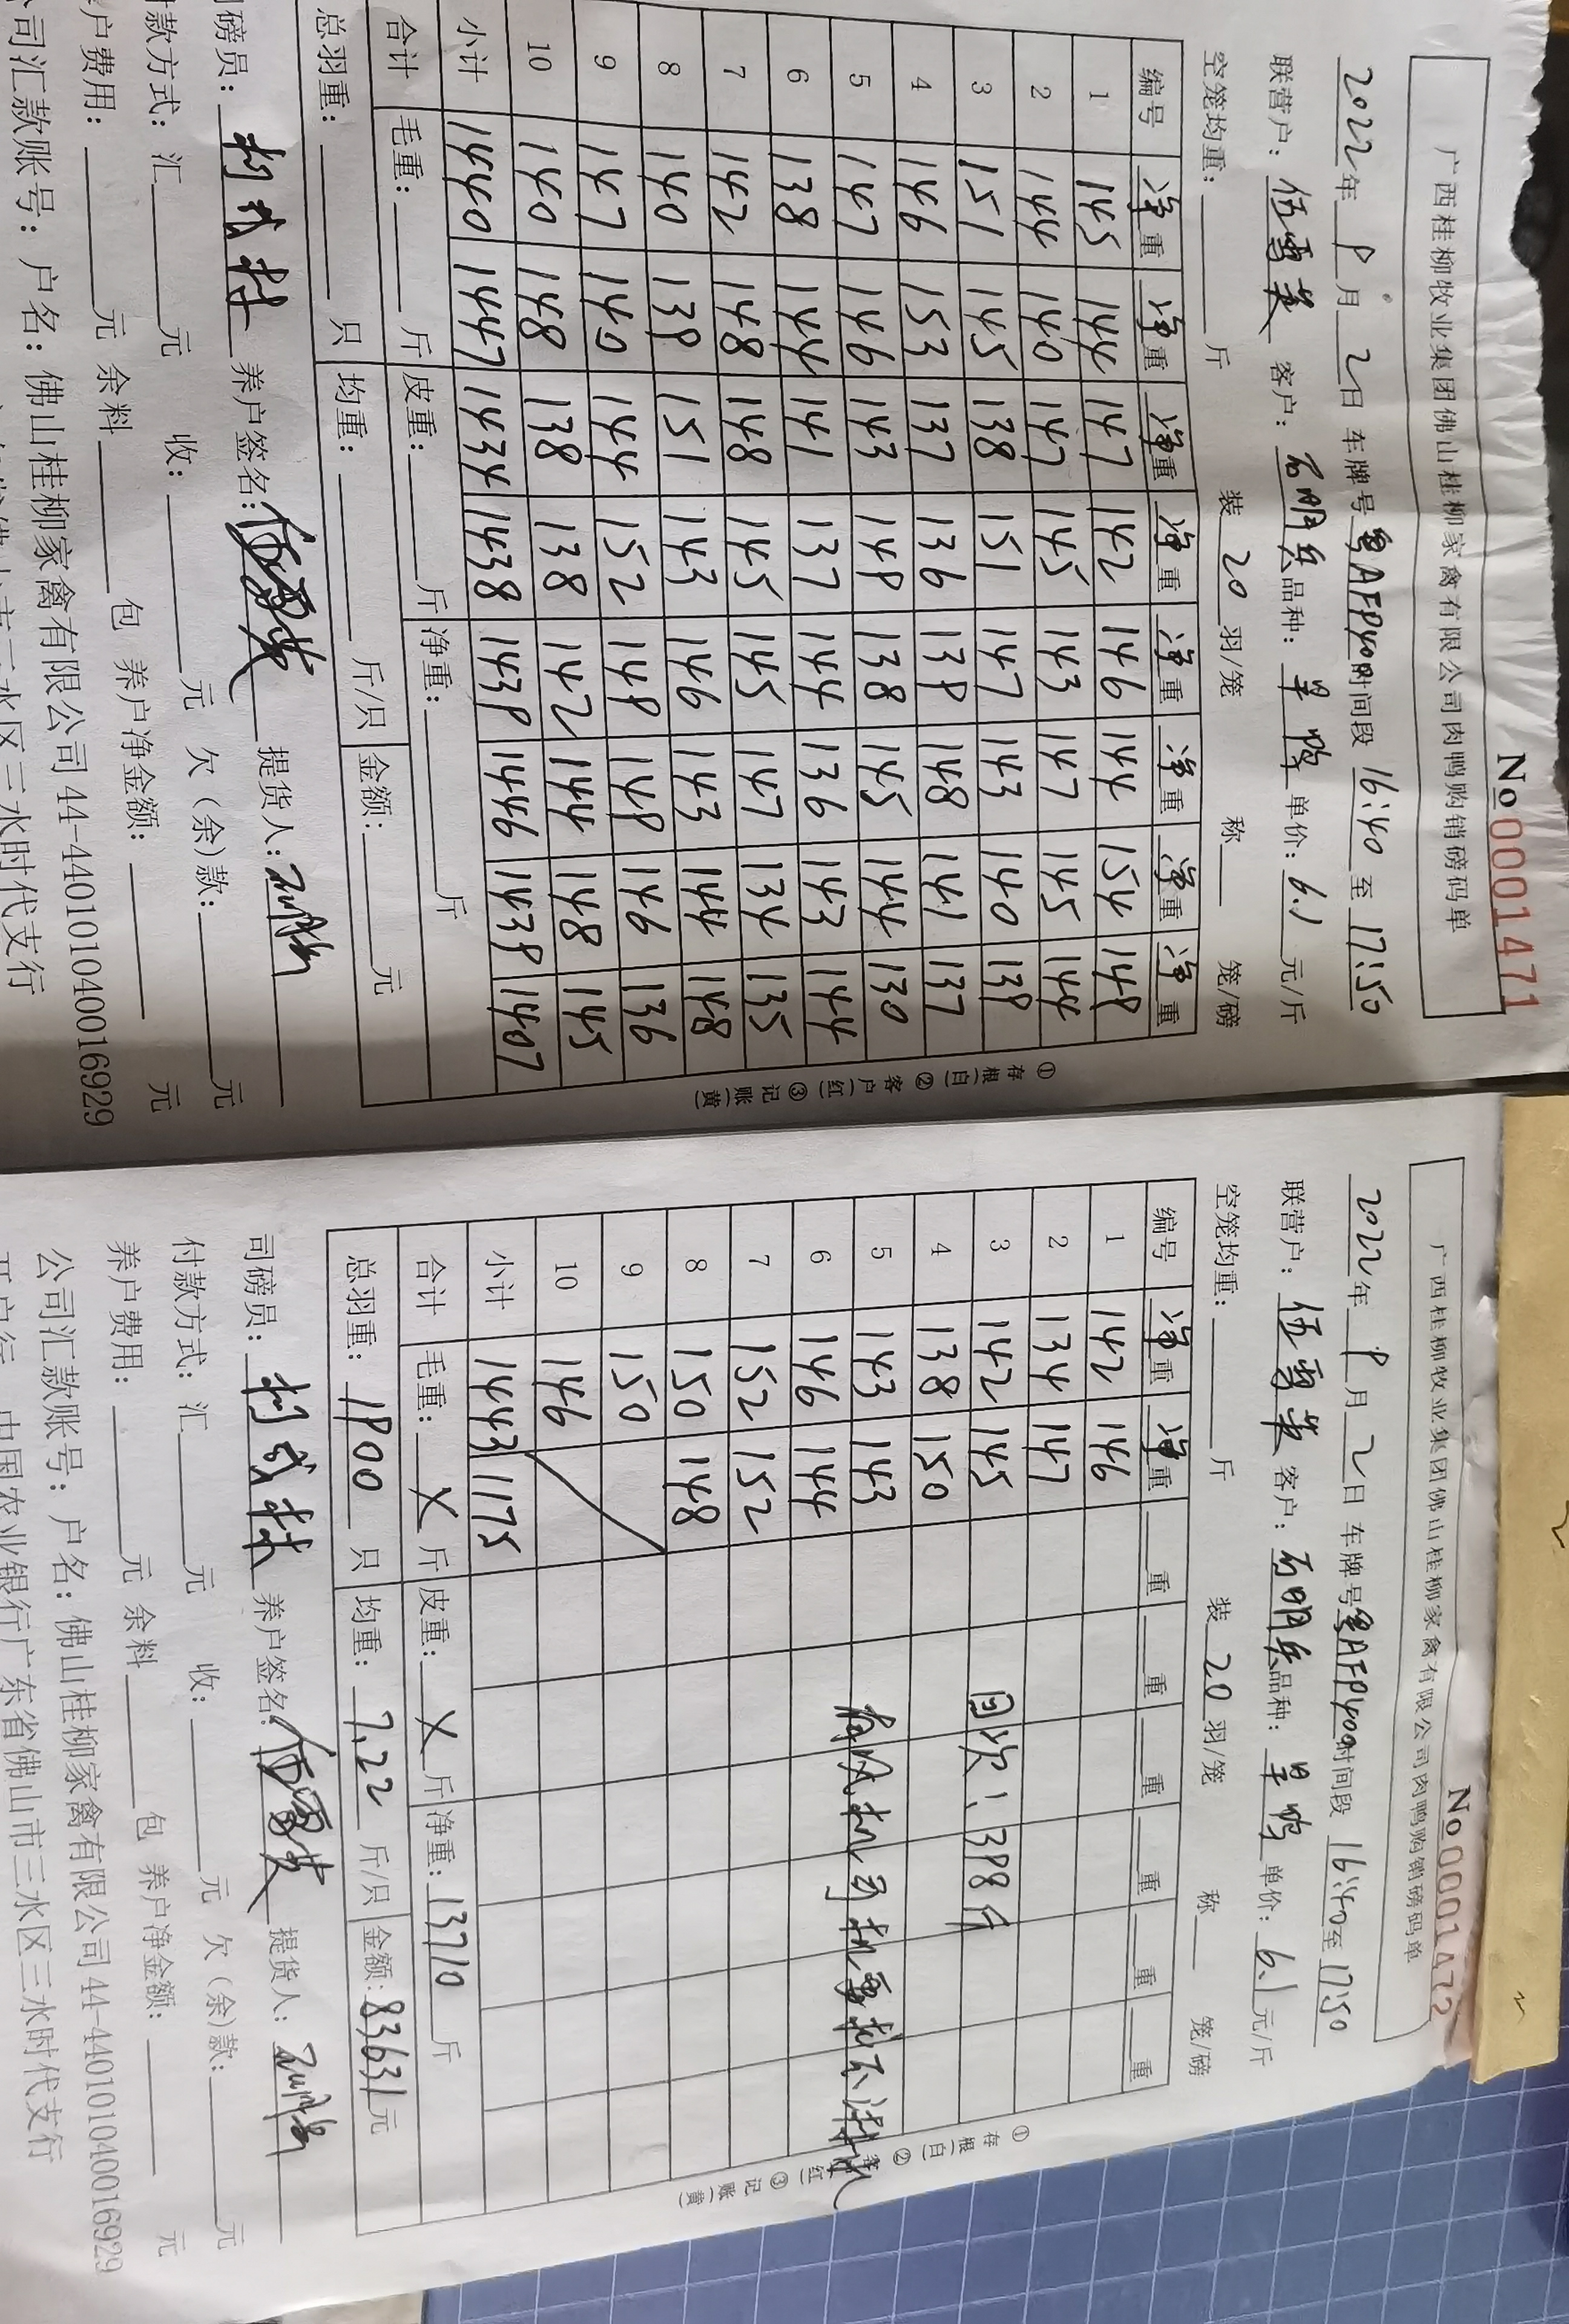 No 0001471
广西桂柳牧业集团佛山桂柳家禽有限公司肉鸭购销磅码单
2022年9月2日 车牌号 粤AF9400 时间段 16:40 至 17:50
联营户: 伍雪英 客户: 石明兵 品种: 旱鸭 单价: 6.1 元/斤
空笼均重: 斤 装 20 羽/笼 称 笼/磅
编号 净重 净重 净重 净重 净重 净重 净重 净重
1 145 144 147 142 146 144 154 149
2 144 140 147 145 143 147 145 144
3 151 145 138 151 147 143 140 139
4 146 153 137 136 139 148 141 137
5 147 146 143 149 138 145 144 130
6 138 144 141 137 144 136 143 144
7 142 148 148 145 145 147 134 135
8 140 139 151 143 146 143 144 148
9 147 140 144 152 149 149 146 136
10 140 148 138 138 142 144 148 145
小计 1440 1447 1434 1438 1439 1446 1439 1407
合计 毛重: 斤 皮重: 斤 净重: 斤
总羽重: 只 均重: 斤/只 金额: 元
①存根(白)②客户(红)③记账(黄)
司磅员: 养户签名: 提货人:
付款方式: 汇 元 收: 元 欠(余)款: 元
养户费用: 元 余料 包 养户净金额: 元
公司汇款账号: 户名: 佛山桂柳家禽有限公司 44-440101040016929
佛山市三水区三水时代支行
No 0001472
广西桂柳牧业集团佛山桂柳家禽有限公司肉鸭购销磅码单
2022年9月2日 车牌号 粤AF9400 时间段 16:40 至 17:50
联营户: 伍雪英 客户: 石明兵 品种: 旱鸭 单价: 6.1 元/斤
空笼均重: 斤 装 20 羽/笼 称 笼/磅
编号 净重 净重 重 重 重 重 重 重
1 142 146
2 134 147
3 142 145 回次:398斤
4 138 150
5 143 143 有风机司机要求不淋水
6 146 144
7 152 152
8 150 148
9 150
10 146
小计 1443 1175
合计 毛重: X 斤 皮重: X 斤 净重: 13710 斤
总羽重: 1900 只 均重: 7.22 斤/只 金额: 83631 元
①存根(白)②客(红)③记账(黄)
司磅员: 养户签名: 提货人:
付款方式: 汇 元 收: 元 欠(余)款: 元
养户费用: 元 余料 包 养户净金额: 元
公司汇款账号: 户名: 佛山桂柳家禽有限公司 44-440101040016929
开户行 中国农业银行广东省佛山市三水区三水时代支行